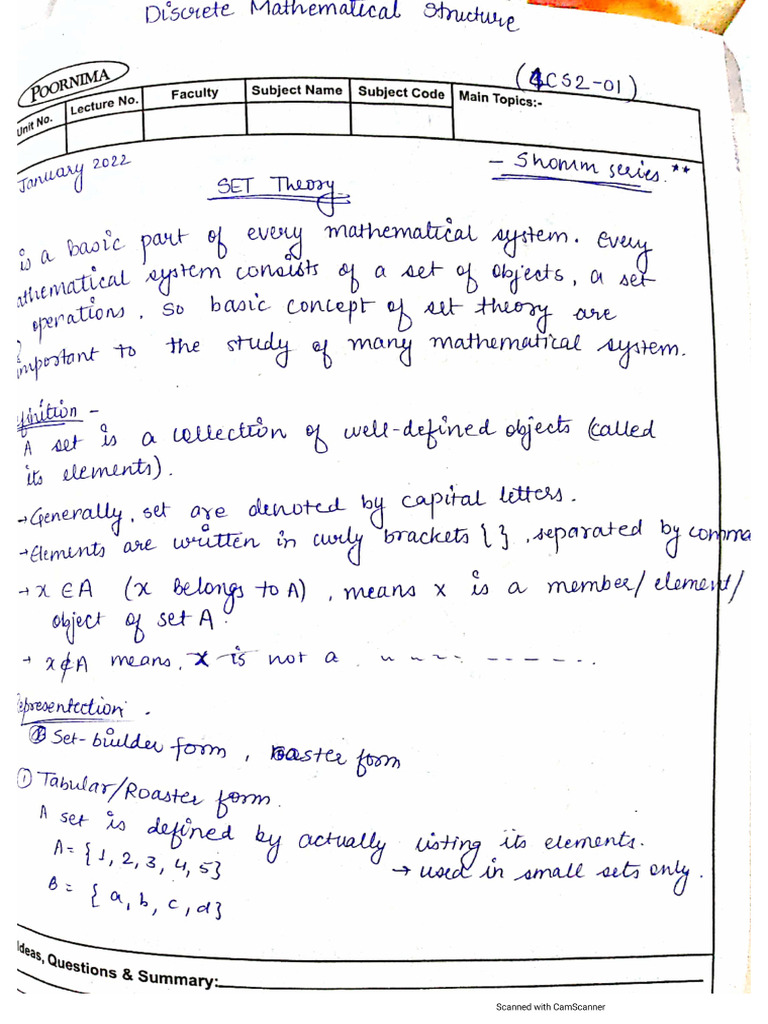 Discrete Mathematical Structure
POORNIMA
(4CS2-01)
Unit No. Lecture No. Faculty Subject Name Subject Code Main Topics:-
January 2022
- Shomm series.**
SET Theory
is a basic part of every mathematical system. Every
athematical system consists of a set of objects, a set
operations. So basic concept of set theory are
important to the study of many mathematical system.
efinition -
A set is a collection of well-defined objects (called
its elements).
→ Generally, set are denoted by capital letters.
→ Elements are written in curly brackets { }, separated by comma
→ x ∈ A (x belongs to A), means x is a member/element/
object of set A.
→ x ∉ A means, x is not a
epresentction.
Set-builder form, roaster form
① Tabular/Roaster form.
A set is defined by actually listing its elements.
A = {1, 2, 3, 4, 5}
→ used in small sets only.
B = {a, b, c, d}
Ideas, Questions & Summary:
Scanned with CamScanner